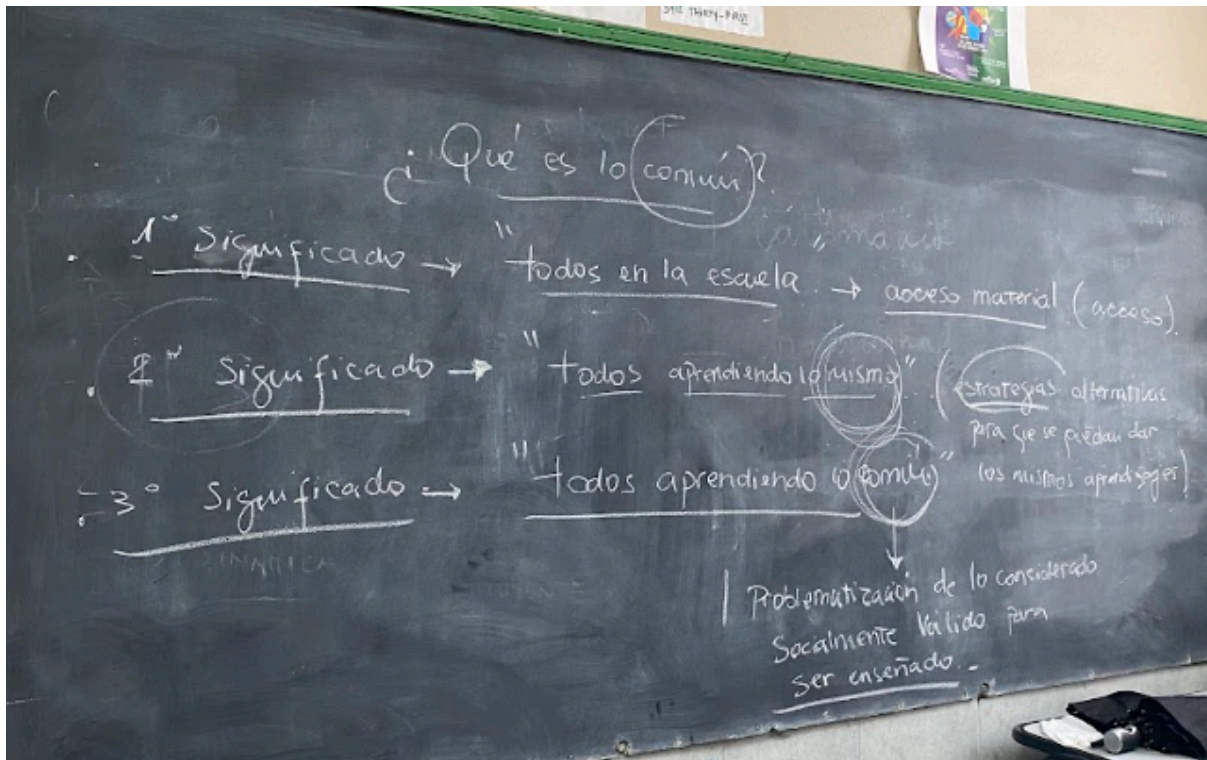 SAYS THIRTY-FIRST
¿Qué es lo común?
1º Significado → "todos en la escuela" → acceso material (acceso).
2º Significado → "todos aprendiendo lo mismo" (estrategias alternativas
para que se puedan dar
los mismos aprendizajes)
3º Significado → "todos aprendiendo lo común"
↓
Problematización de lo considerado
Socalmente Válido para
ser enseñado.-